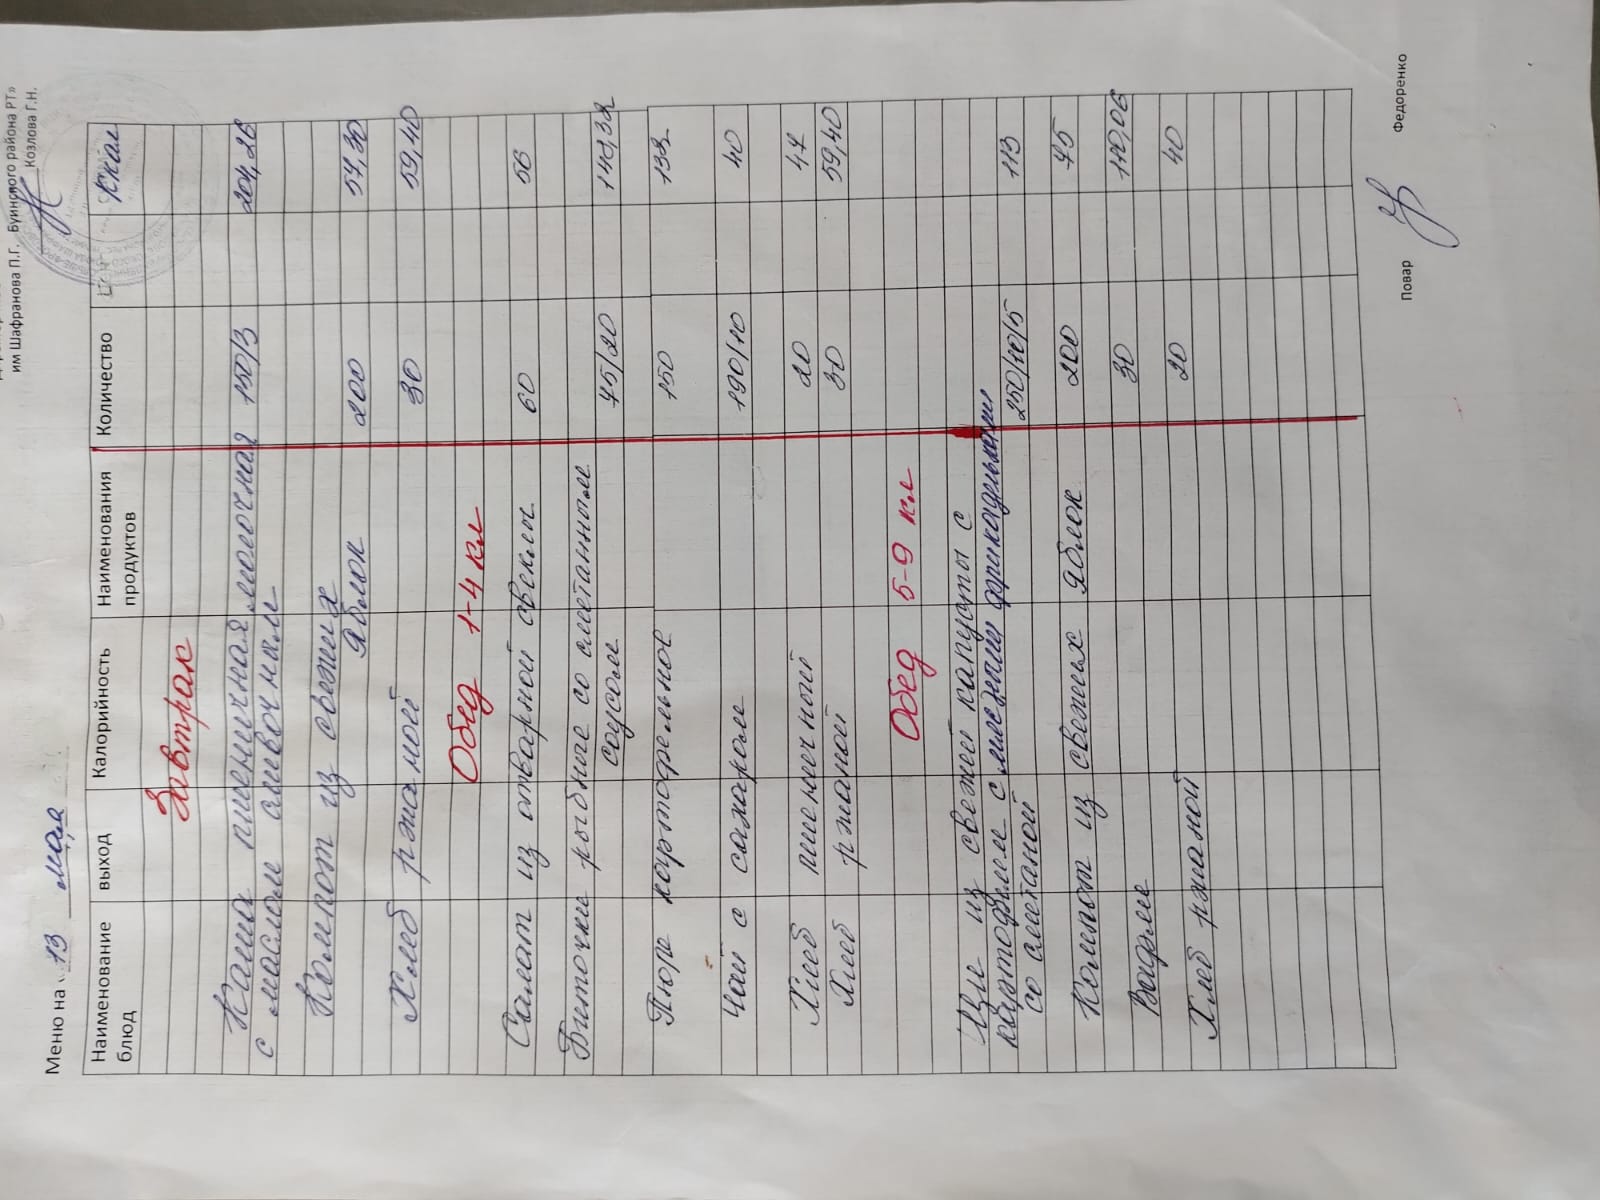 им Шафранова П.Г. Буинского района РТ»
Козлова Г.Н.
Меню на «13 мая
Наименование блюд выход Калорийность Наименования продуктов Количество Ккал
Завтрак
Каша пшеничная молочная 150/3 204,26
с маслом сливочным
Компот из свежих
яблок 200 57,30
Хлеб ржаной 30 59,40
Обед 1-4 кл
Салат из отварной свеклы 60 56
Биточки рыбные со сметанным
соусом 75/20 140,32
Пюре картофельное 150 132
Чай с сахаром 190/10 40
Хлеб пшеничный 20 47
Хлеб ржаной 30 59,40
Обед 5-9 кл
Щи из свежей капусты с
картофелем с мясными фрикадельками
со сметаной 250/10/5 113
Компот из свежих яблок 200 75
Вафли 30 110,06
Хлеб ржаной 20 40
Повар Федоренко